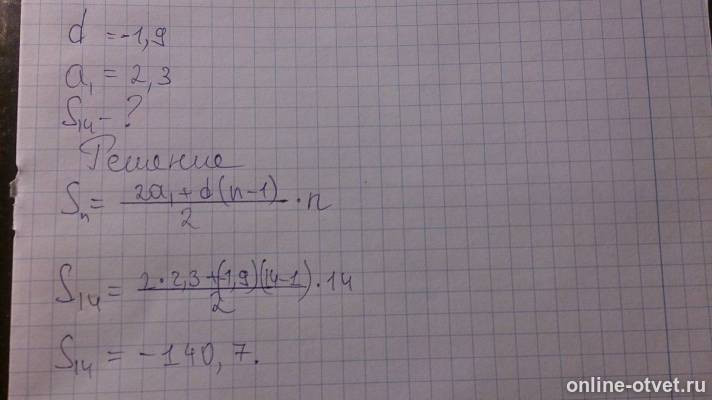 d = -1,9
a₁ = 2,3
S₁₄ - ?
Решение
Sₙ = (2a₁ + d(n-1))/2 · n
S₁₄ = (2·2,3+(-1,9)(14-1))/2 · 14
S₁₄ = -140,7.
online-otvet.ru